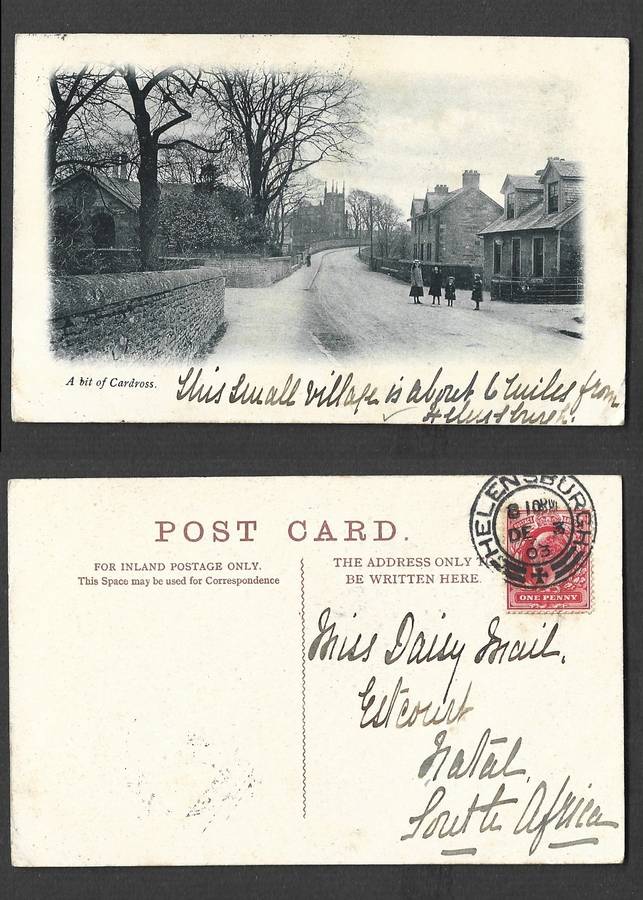 A bit of Cardross.
This Small village is about 6 miles from
Helensburgh.
POST CARD.
FOR INLAND POSTAGE ONLY.
This Space may be used for Correspondence
THE ADDRESS ONLY T
BE WRITTEN HERE.
HELENSBURGH
DE
03
ONE PENNY
Miss Daisy Mail.
Estcourt
Natal
South Africa